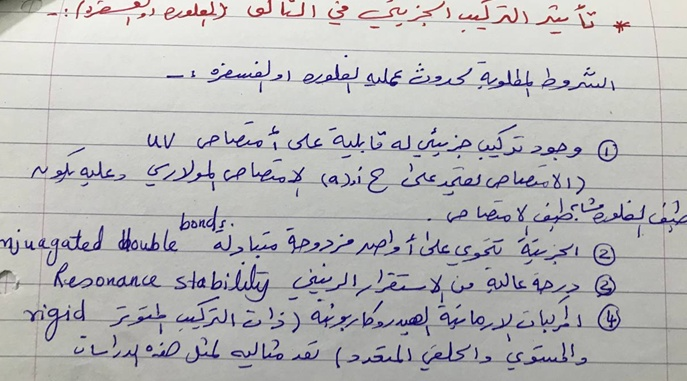 * تأثير التركيب الجزيئي في التألق (الفلورة والفسفرة) :-
الشروط المطلوبة لحدوث عملية الفلورة او الفسفرة :-
① وجود تركيب جزيئي له قابلية على أمتصاص UV
(الامتصاص يعتمد على ع أو (a) الامتصاص المولاري وعليه يكون
طيف الفلورة مشابه طيف الامتصاص .
② الجزيئة تحتوي على أواصر مزدوجة متبادلة njuagated double bonds.
③ درجة عالية من الاستقرار الرنيني Resonance stability
④ المركبات الارماتية الهيدروكاربونية (ذات التركيب المتوتر rigid
والمستوي والحلقي المتعدد) تعد مثاليه لمثل هذه الدراسات